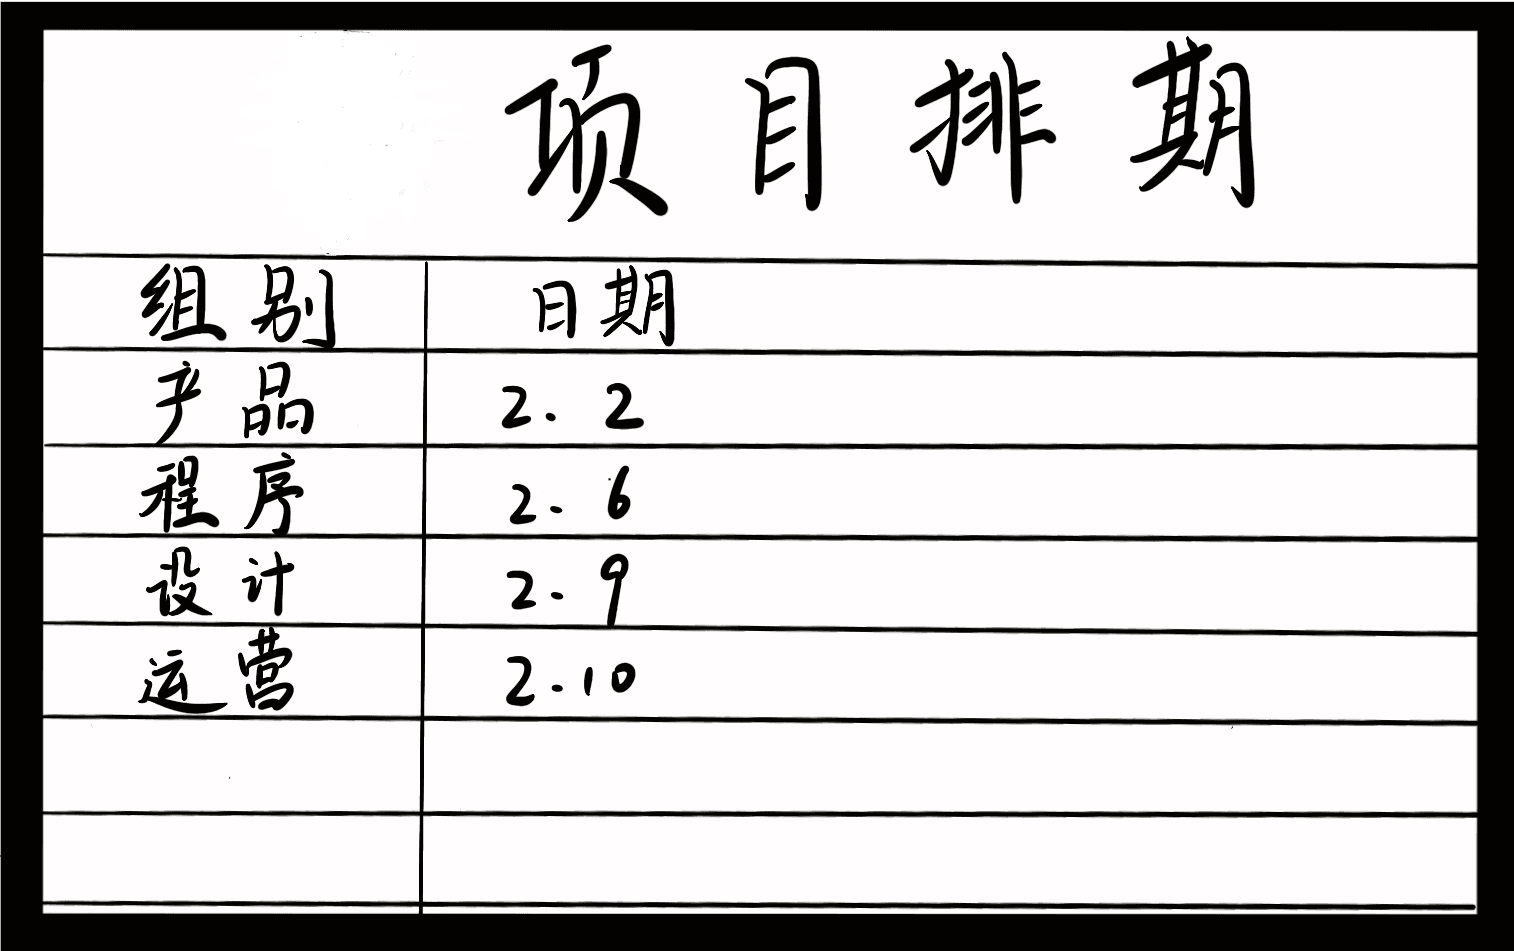 项目排期
组别 日期
产品 2.2
程序 2.6
设计 2.9
运营 2.10